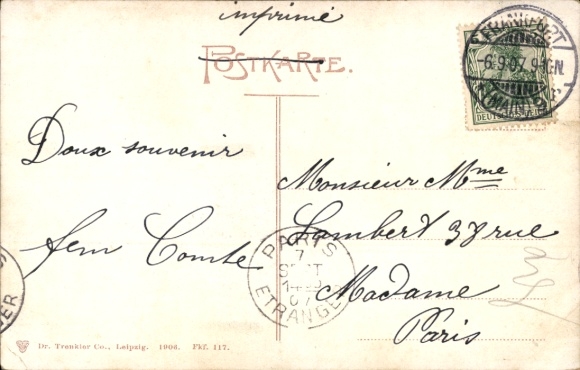 imprimé
POSTKARTE.
FRANKFURT
-6.9.07.9-10N.
(MAIN)
DEUTSCHES REICH
Doux souvenir
fem Comte
Monsieur Mme
Lambert 38 rue
Madame
Paris
PARIS
7
SEPT
07
ETRANGER
Dr. Trenkler Co., Leipzig. 1906. Fkf. 117.